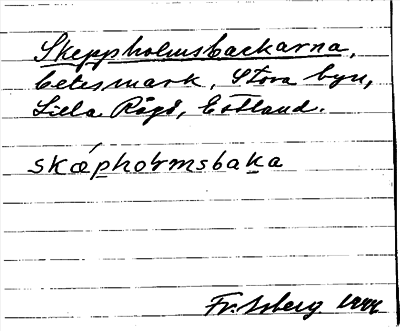 Skeppholmsbackarna,
betesmark, Stora byn,
Lilla Rågö, Estland.
skǽpholmsbaka
Fr. Isberg